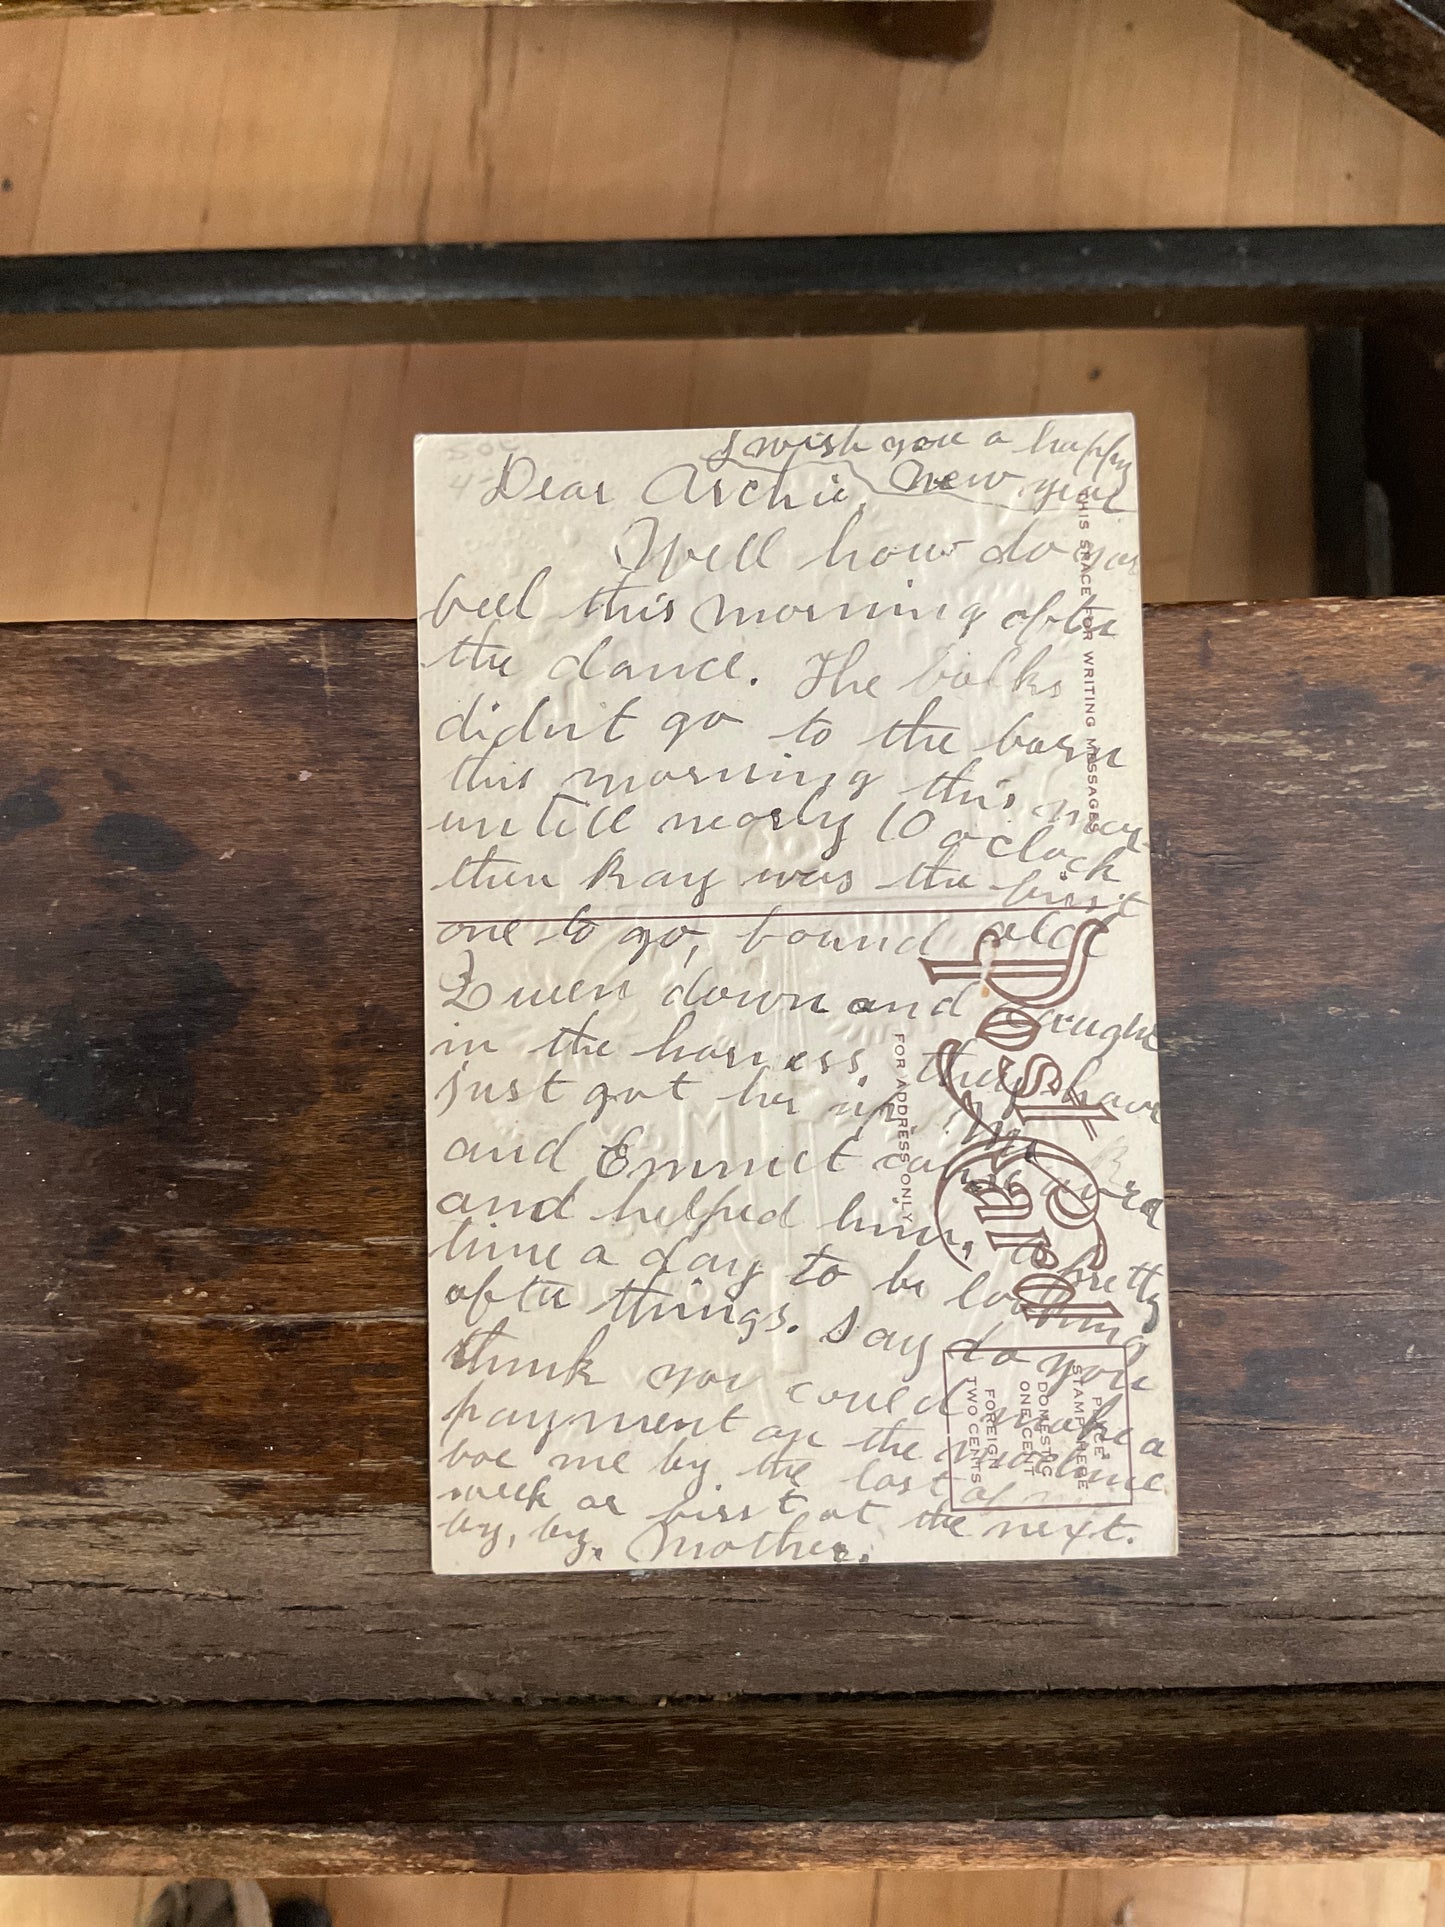 I wish you a happy
Dear Archie, New year
Well how do you
feel this morning after
the dance. The folks
didn't go to the barn
this morning this mor-
untill nearly 10 oclock
then Ray was the first
one to go, found old
Queen down and caught
in the harness, they have
just got her up. Mr
and Emmet came over
and helped him, a pretty
time a day to be looking
after things. Say do you
think you could make a
payment on the machine
for me by the last of
week or first of the next.
by, by, Mother.
THIS SPACE FOR WRITING MESSAGES
Post Card
FOR ADDRESS ONLY
PLACE
STAMP HERE
DOMESTIC
ONE CENT
FOREIGN
TWO CENTS